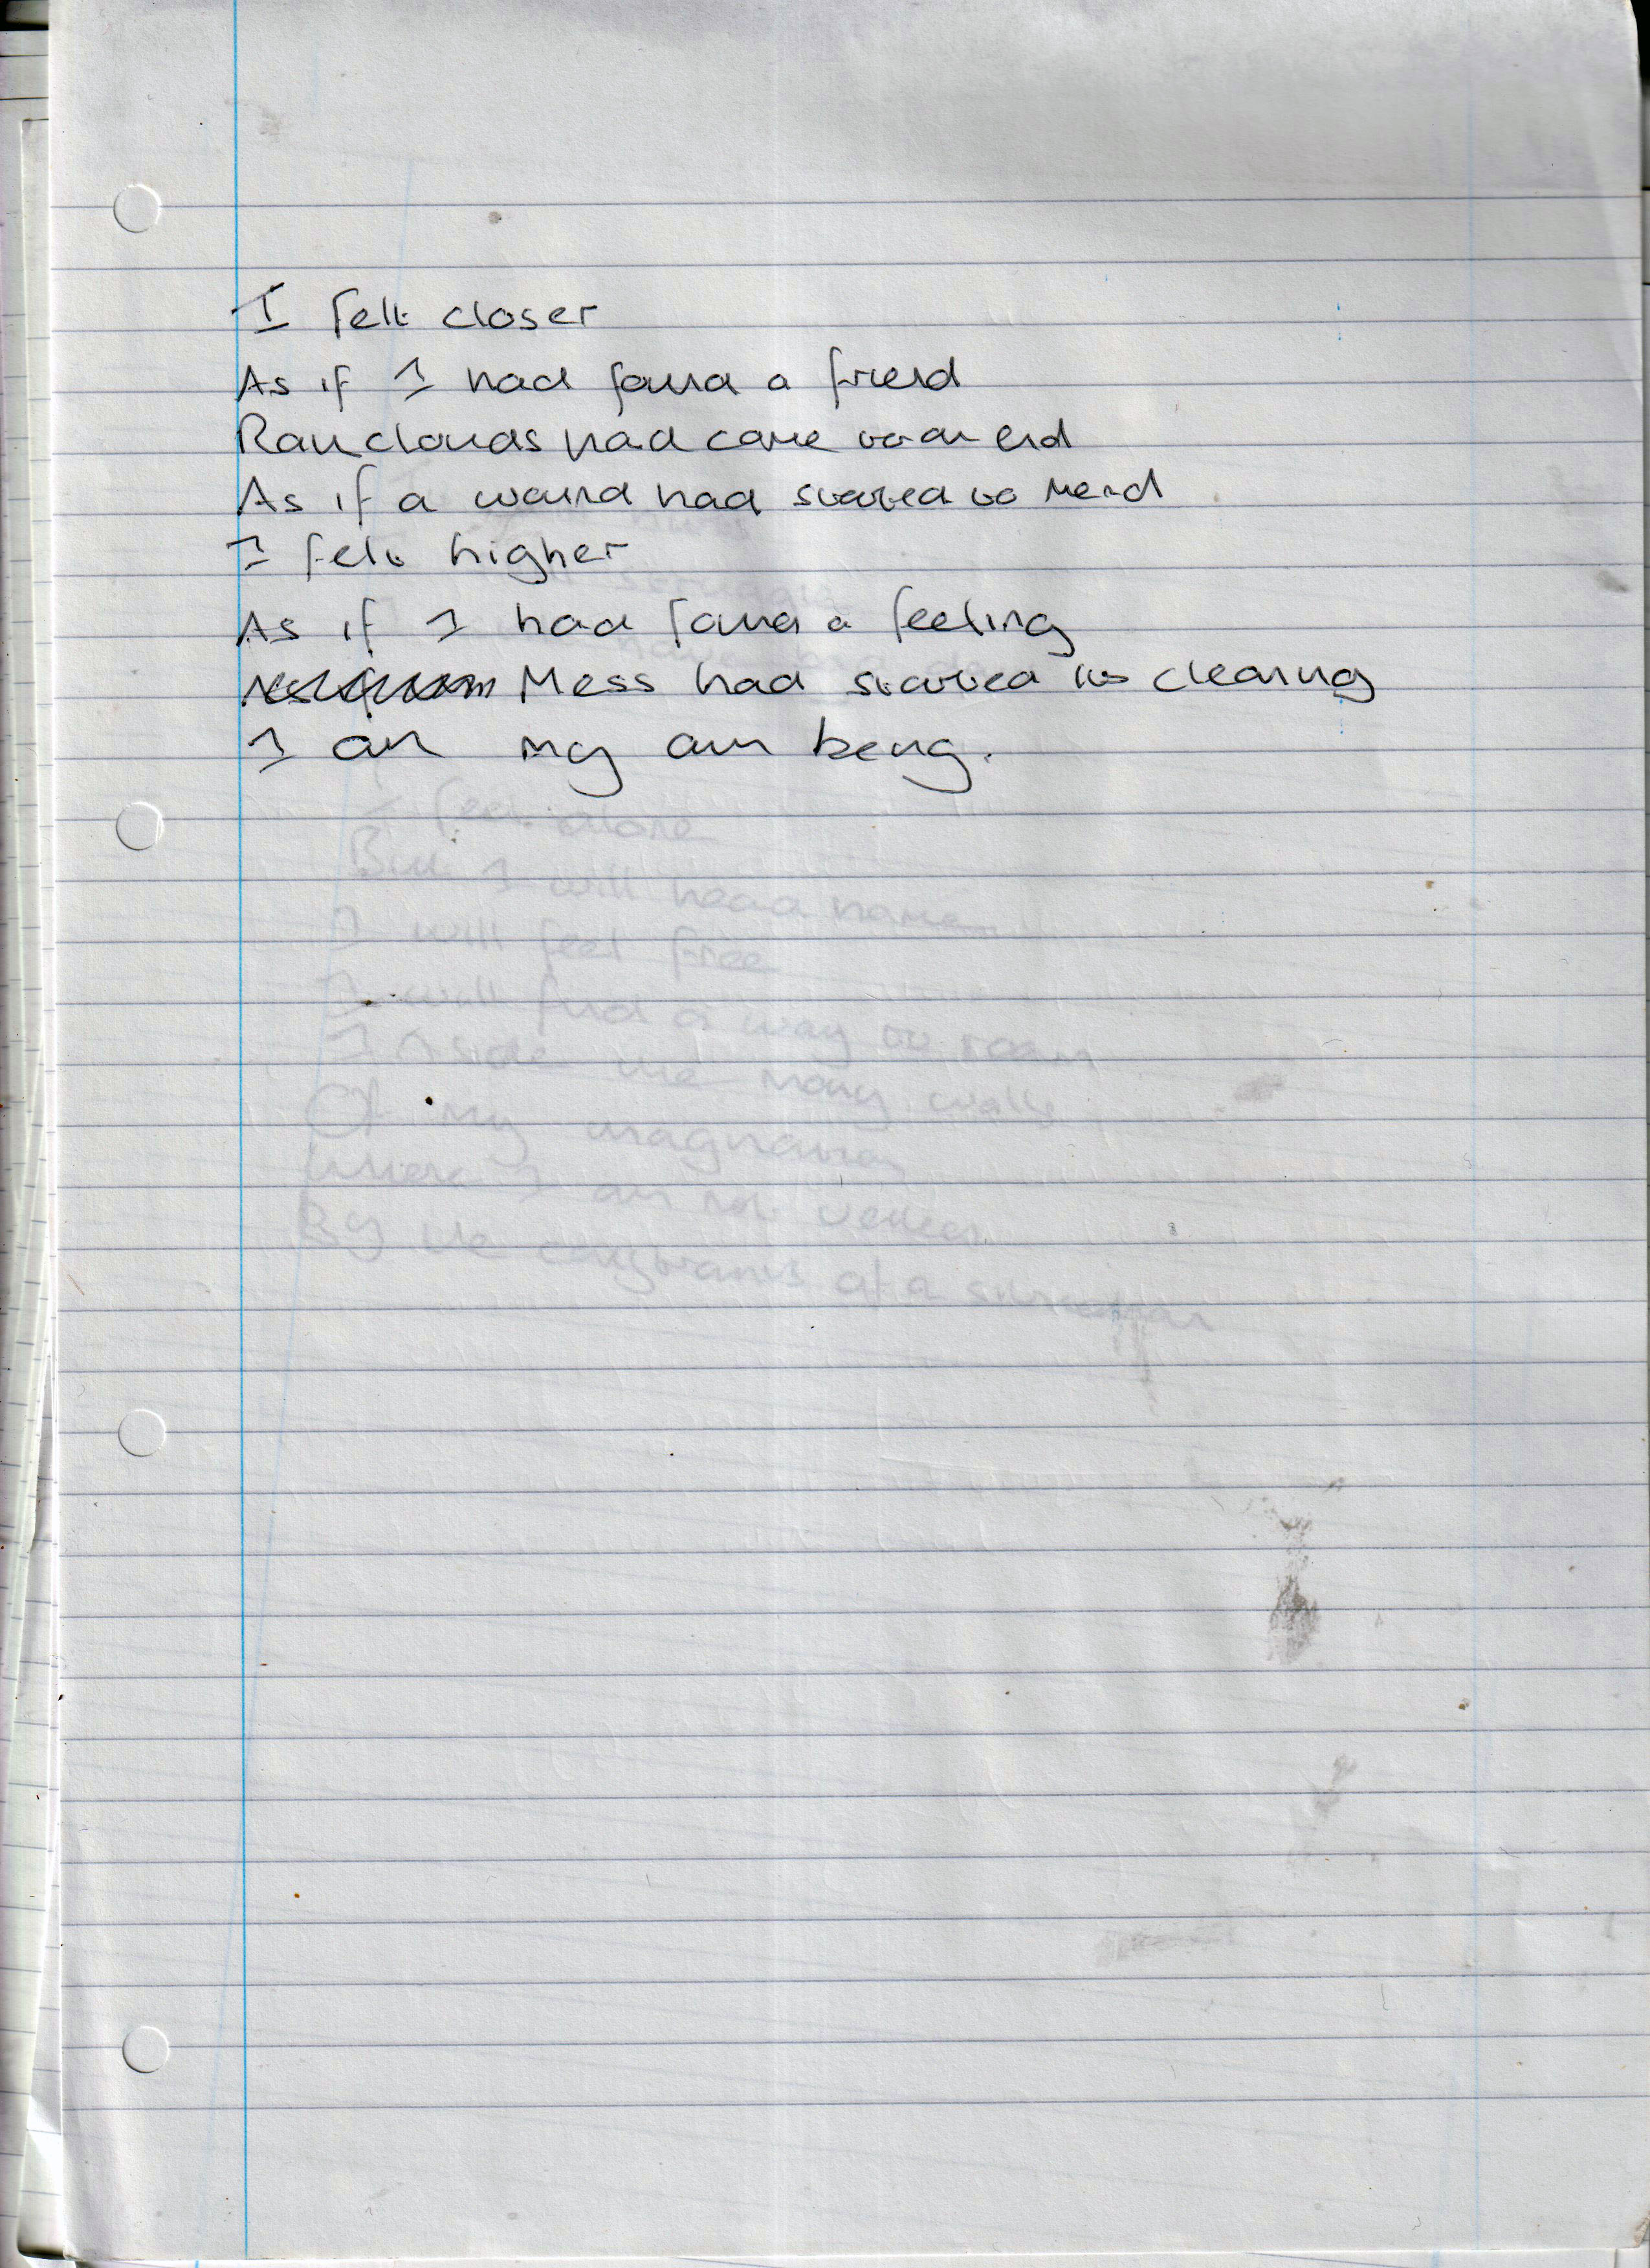 I felt closer
As if I had found a friend
Rain clouds had come to an end
As if a wound had started to mend
I felt higher
As if I had found a feeling
Mess had started its cleaning
I am my own being.
I feel alone
But I will head home
I will feel free
I will find a way to roam
Inside the many walls
Of my imagination
Where I am not
By the constraints of a